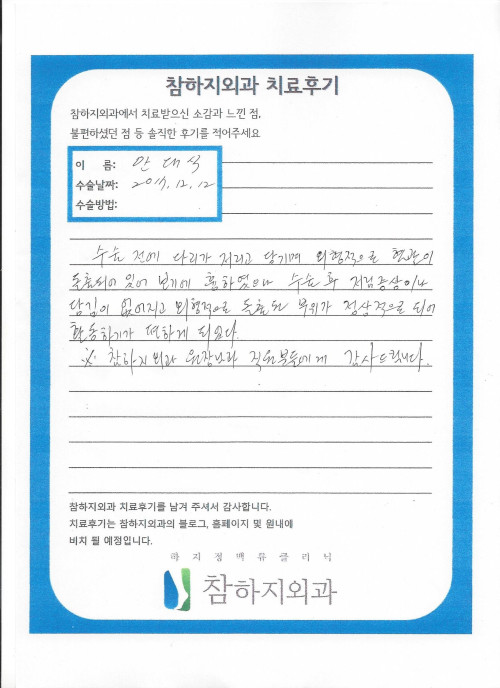 참하지외과 치료후기
참하지외과에서 치료받으신 소감과 느낀 점,
불편하셨던 점 등 솔직한 후기를 적어주세요
이 름: 안 대 식
수술날짜: 2017. 12. 12
수술방법:
수술 전에 다리가 저리고 당기며 외형적으로 혈관이
돌출되어 있어 보기에 흉하였으나 수술 후 저림증상이나
당김이 없어지고 외형적으로 돌출된 부위가 정상적으로 되어
활동하기가 편하게 되었다
※ 참하지외과 원장님과 직원분들에게 감사드립니다.
참하지외과 치료후기를 남겨 주셔서 감사합니다.
치료후기는 참하지외과의 블로그, 홈페이지 및 원내에
비치 될 예정입니다.
하지정맥류클리닉
참하지외과